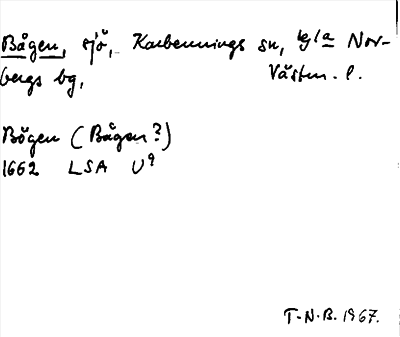 Bågen, sjö, Karbennings sn, Nor-
bergs bg, Västm. l.
Bögen (Bågen?)
1662 LSA U9
T.N.B. 1967.